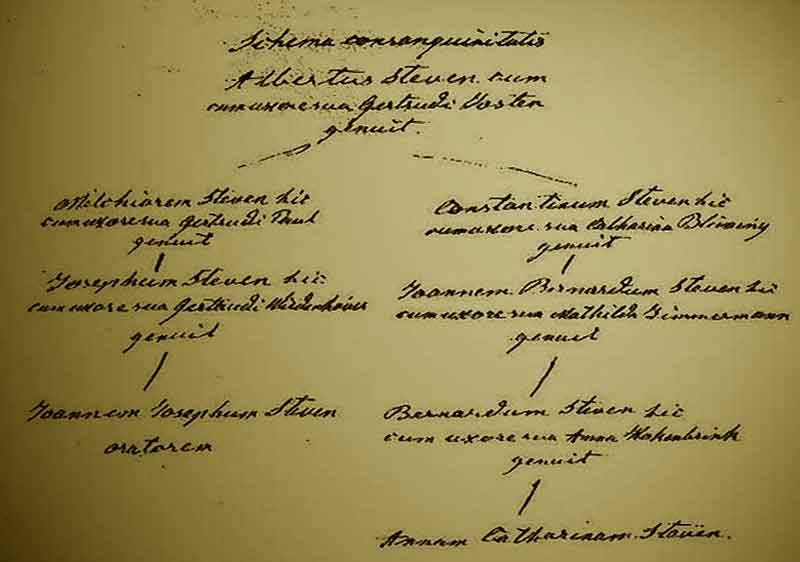 Schema consanguinitatis
Albertus Steven cum
cum uxore sua Gertrudi Vosten
genuit.
Milchiorem Steven hic
cum uxore sua Gertrudi Paul
genuit
Josephum Steven hic
cum uxore sua Gertrudi
genuit
Joannem Josephum Steven
oratorem
Constantinum Steven hic
cum uxore sua Catharina
genuit
Joannem Bernardum Steven hic
cum uxore sua Mathilda Zimmermann
genuit
Bernardum Steven hic
cum uxore sua Anna Hohenbrink
genuit
Annam Catharinam Steven.